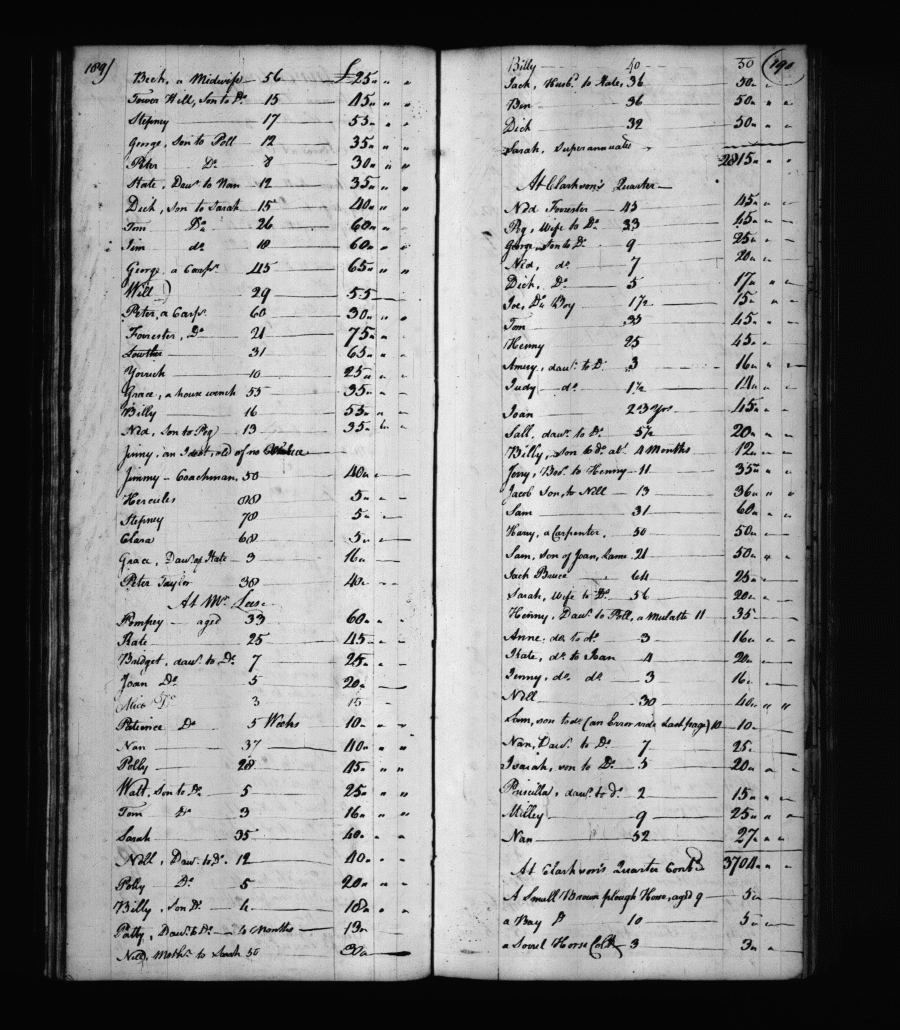 189)
Beck, a Midwife 56 £25 " "
Tower Hill, Son to Do. 15 45 " "
Stepney 17 55 " "
George, Son to Poll 12 35 " "
Peter Do. 8 30 " "
Kate, Dawr. to Nan 12 35 " "
Dick, Son to Sarah 15 40 " "
Tom Do. 26 60 " "
Jim do. 18 60 " "
George, a Carpr. 45 65 " "
Will ) 29 55
Peter, a Carpr. 60 30 " "
Forrester, Do. 21 75 " "
Lowther 31 65 " "
Yorrick 10 25 " "
Grace, a house wench 55 35 " "
Billy 16 55 " "
Ned, Son to Peg 13 35 " "
Jinny, an Ideot, old of no Value
Jimmy - Coachman, 50 40 "
Hercules 88 5 "
Stepney 78 5 "
Clara 68 5 "
Grace, Dawr. of Kate 3 16 "
Peter Taylor 38 40 "
At Mr. Lees
Pompey - aged 33 60 " "
Kate 25 45 " "
Bridget, dawr. to Do. 7 25 " "
Joan Do. 5 20 "
Alice Do. 3 15
Patience Do 5 Weeks 10 " "
Nan 37 40 " "
Polly 28 45 " "
Watt, Son to Do. 5 25 " "
Tom Do 3 16 " "
Sarah 35 40 " "
Nell, Dawr. to Do. 12 40 " "
Polly Do. 5 20 " "
Billy, Son Do. 4 18 " "
Patty, Dawr. to Do. 4 Months 13 "
Nell, Mothr. to Sarah 50 30
190
Billy 40 30
Jack, Husbd. to Kate, 36 50 "
Ben 36 50 " "
Dick 32 50 " "
Sarah, superannuated
2815 " "
At Clarkson's Quarter
Ned Forrester 45 45 "
Peg, Wife to Do. 33 45 " "
George, Son to Do. 9 25 " "
Ned, do. 7 20 "
Dick, Do. 5 17 " "
Joe, Do. Boy 1 1/2 15 " "
Tom 35 45 " "
Henny 25 45 "
Amey, dawr. to Do. 3 16 " "
Judy do. 1 1/2 14 "
Joan 23 Yrs 45 " "
Sall, dawr. to Do. 5 1/2 20 " "
Billy, Son to do. abt. 4 Months 12 " "
Jerry, Bror. to Henny 11 35 " "
Jacob Son, to Nell 13 36 " "
Sam 31 60 " "
Harry, a Carpenter, 50 50 " "
Sam, son of Joan, lame 21 50 " "
Jack Bruce 64 25 "
Sarah, Wife to Do. 56 20 "
Henny, Dawr. to Poll, a Mulatto 11 35
Anne, do. to do. 3 16 "
Kate, do. to Joan 4 20 "
Jenny, do. do. 3 16
Nell 30 40 " "
Sam, son to do (an Error vide Last page) 10 10 "
Nan, Dawr. to Do. 7 25
Isaiah, son to Do. 5 20 " "
Priscilla, dawr. to do. 2 15 " "
Milley 9 25 " "
Nan 52 27 "
3704 " "
At Clarkson's Quarter Contd.
A Small Brown plough Horse, aged 9 5
a Bay Do 10 5 "
a Sorrel Horse Colt 3 3 "